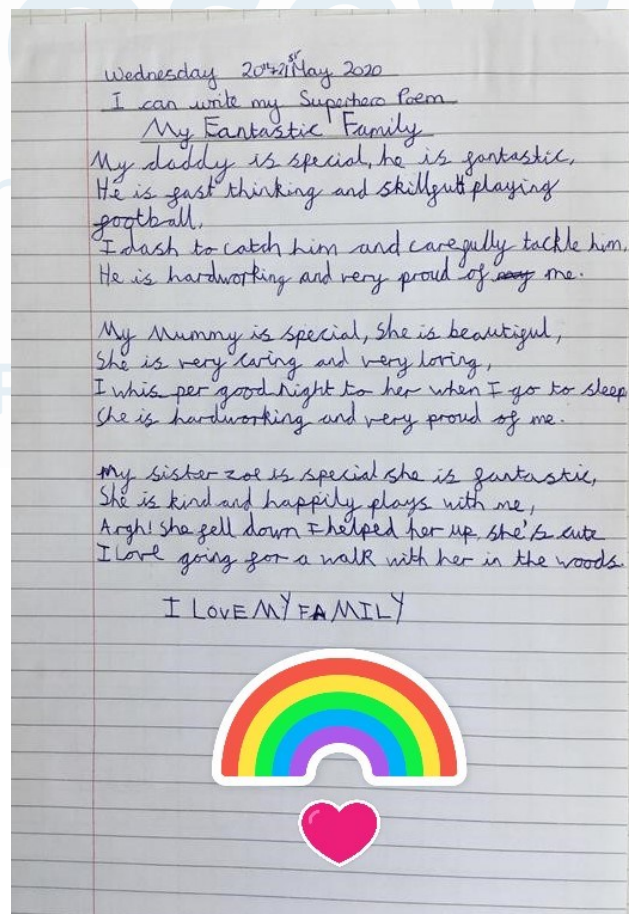 Wednesday 20th+21st May 2020
I can write my Superhero Poem
My Fantastic Family
My daddy is special, he is fantastic,
He is fast thinking and skillfull playing
football,
I dash to catch him and carefully tackle him,
He is hardworking and very proud of me.
My Mummy is special, she is beautiful,
She is very caring and very loving,
I whisper good night to her when I go to sleep
She is hardworking and very proud of me.
My sister zoe is special she is fantastic,
She is kind and happily plays with me,
Argh! She fell down I helped her up, she's cute
I Love going for a walk with her in the woods.
I LOVE MY FAMILY